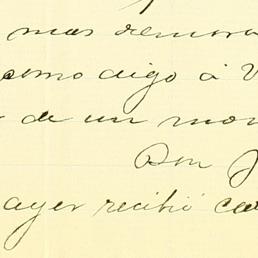 mas demora
como digo á V
de un mo
Don J
ayer recibió ca